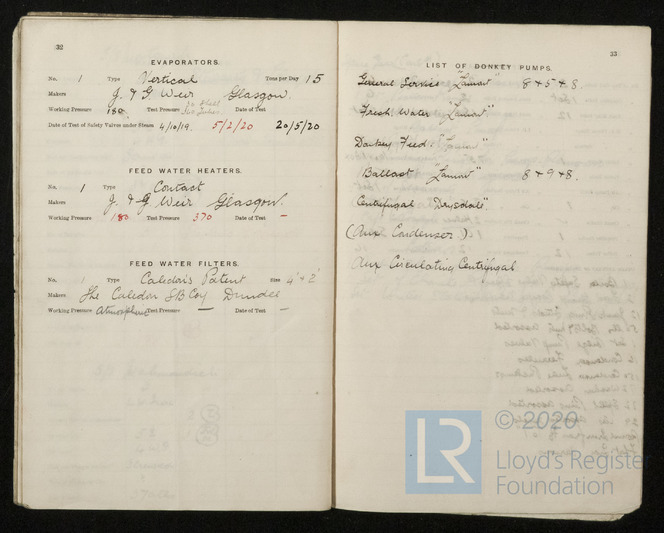 32
EVAPORATORS.
No. 1 Type Vertical Tons per Day 15
Makers J. & G Weir Glasgow.
Working Pressure 180 Test Pressure
Date of Test of Safety Valves under Steam 4/10/19. 5/2/20 20/5/20
FEED WATER HEATERS.
No. 1 Type Contact
Makers J. & G Weir Glasgow.
Working Pressure 180 Test Pressure 370 Date of Test —
FEED WATER FILTERS.
No. 1 Type Caledon's Patent Size 4' × 2'
Makers The Caledon S/B Coy Dundee
Working Pressure Atmosphere Test Pressure — Date of Test —
33
LIST OF DONKEY PUMPS.
General Service "Lamont" 8 & 5 & 8.
Fresh Water "Lamont"
Donkey Feed. "Lamont"
Ballast "Lamont" 8 & 9 & 8.
Centrifugal "Drysdale".
(Aux Condenser).
Aux Circulating Centrifugal
LR
© 2020
Lloyd's Register
Foundation